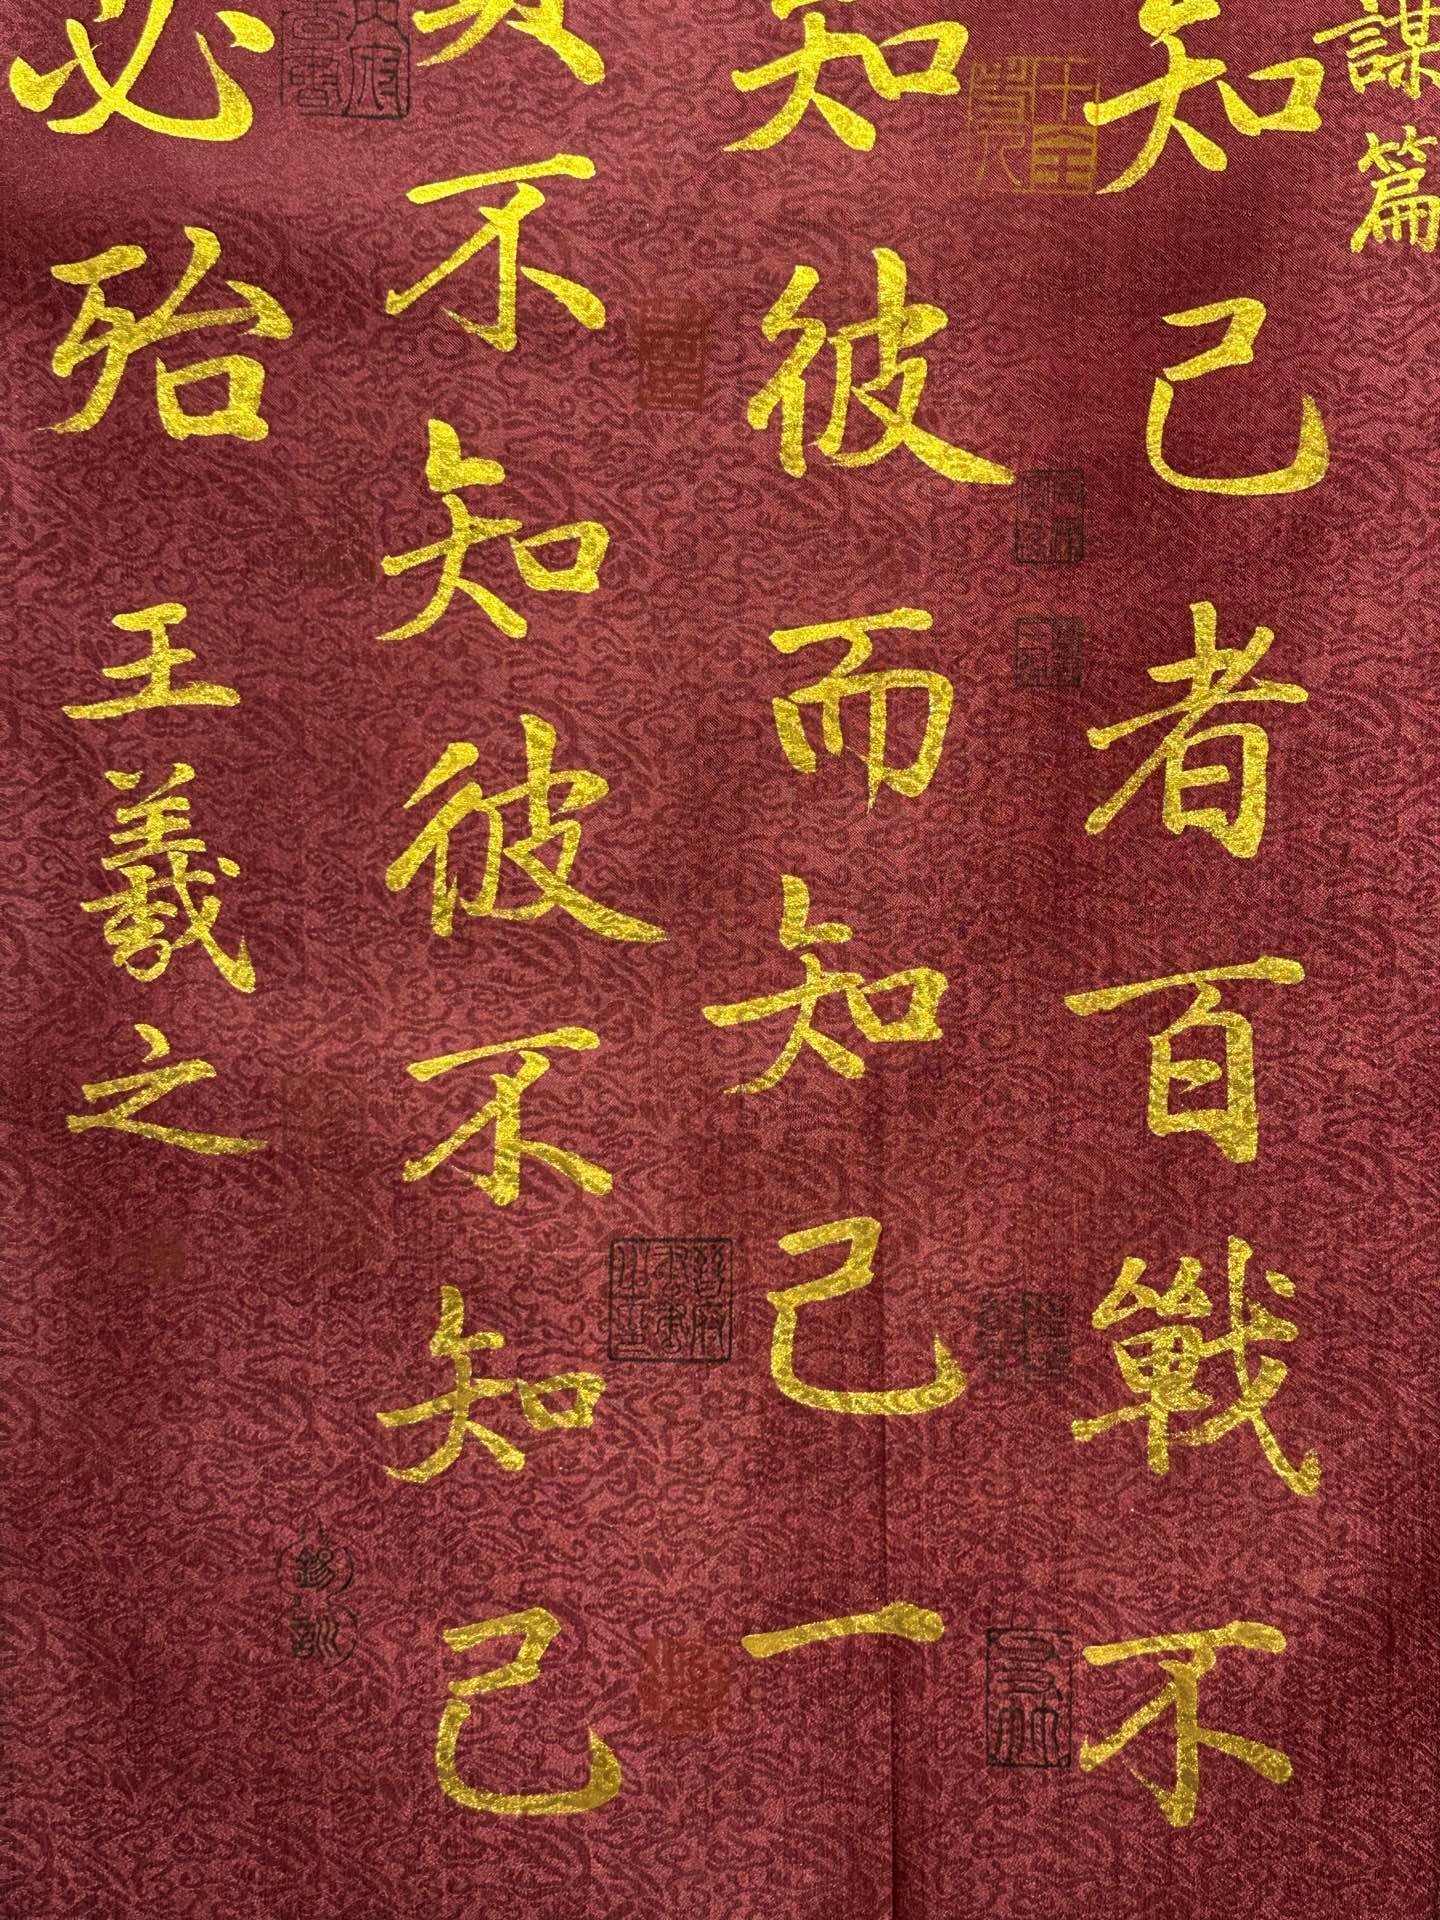 謀篇
知己者百戰不
知彼而知己一
負不知彼不知己
必殆
王羲之